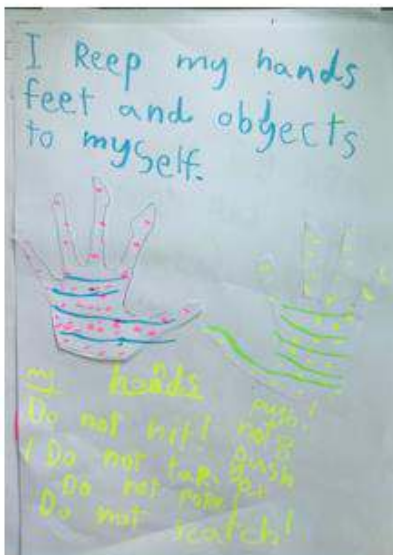 I Keep my hands
feet and objects
to myself.
my hands
push!
Do not hit! not
Do not push
Do not
Do not scatch!